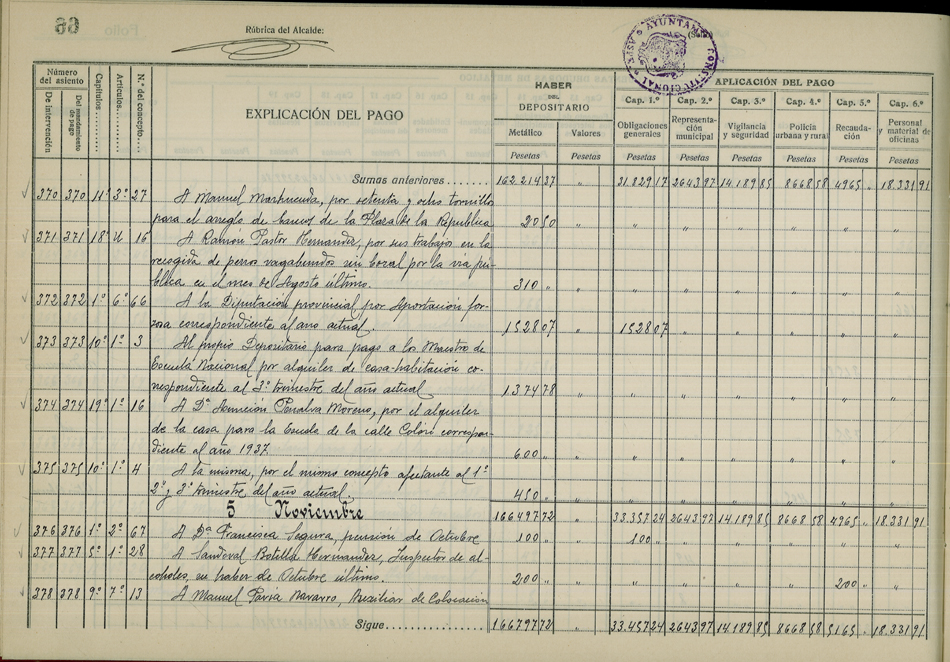 60
Folio
Rúbrica del Alcalde:
AYUNTAM CONSTITUCIONAL ASPE
Número del asiento
De intervención
Del mandamiento de pago
Capítulos
Artículos
N.º del concepto
EXPLICACIÓN DEL PAGO
HABER DEL DEPOSITARIO
Metálico Valores
Pesetas Pesetas
APLICACIÓN DEL PAGO
Cap. 1.º Cap. 2.º Cap. 3.º Cap. 4.º Cap. 5.º Cap. 6.º
Obligaciones generales
Representación municipal
Vigilancia y seguridad
Policía urbana y rural
Recaudación
Personal y material de oficinas
Pesetas Pesetas Pesetas Pesetas Pesetas Pesetas
Sumas anteriores....... 162.214 37 " 31.829 17 2643 97 14.189 85 8668 58 4965 " 18.331 91
370 370 11º 3º 27 A Manuel, por setenta y ocho tornillos
para el arreglo de bancos de la Plaza de la República 20 50 "
371 371 18º U 16 A Ramón Pastor Hernández, por sus trabajos en la
recogida de perros vagabundos sin bozal por la vía pú-
blica en el mes de Agosto último. 310 " "
372 372 1º 6º 66 A la Diputación provincial por Aportación for-
zosa correspondiente al año actual. 1528 07 " 1528 07
373 373 10º 1º 3 Al propio Depositario para pago a los Maestros de
Escuela Nacional por alquiler de casa-habitación co-
rrespondiente al 3º trimestre del año actual 1.374 78 "
374 374 19º 1º 16 A Dª Asunción Penalva Moreno, por el alquiler
de la casa para la Escuela de la calle Colón correspon-
diente al año 1937. 600 " "
375 375 10º 1º 4 A la misma, por el mismo concepto afectante al 1º
2º y 3º trimestre del año actual. 450 " "
5 Noviembre 166497 72 " 33.357 24 2643 97 14.189 85 8668 58 4965 " 18.331 91
376 376 1º 2º 67 A Dª Francisca Segura, pensión de Octubre 100 " " 100 "
377 377 5º 1º 28 A Sandoval Botella Hernández, Inspector de al-
coholes, su haber de Octubre último. 200 " " 200 "
378 378 9º 7º 13 A Manuel Navarro, Auxiliar de Colocación
Sigue............. 166797 72 " 33.457 24 2643 97 14.189 85 8668 58 5165 " 18.331 91